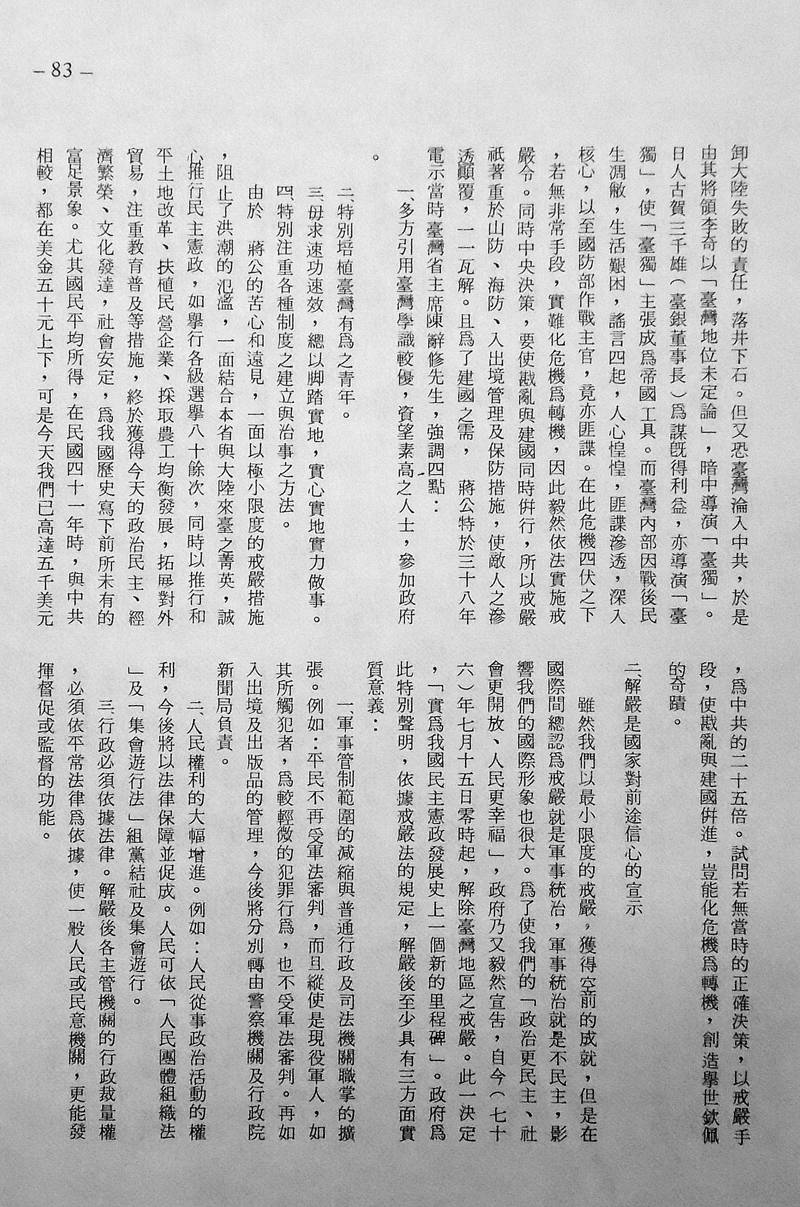 – 83 –
卸大陸失敗的責任，落井下石。但又恐臺灣淪入中共，於是
由其將領李奇以「臺灣地位未定論」，暗中導演「臺獨」。
日人古賀三千雄（臺銀董事長）爲謀旣得利益，亦導演「臺
獨」，使「臺獨」主張成爲帝國工具。而臺灣內部因戰後民
生凋敝，生活艱困，謠言四起，人心惶惶，匪諜滲透，深入
核心，以至國防部作戰主官，竟亦匪諜。在此危機四伏之下
，若無非常手段，實難化危機爲轉機，因此毅然依法實施戒
嚴令。同時中央決策，要使戡亂與建國同時倂行，所以戒嚴
祇著重於山防、海防、入出境管理及保防措施，使敵人之滲
透顚覆，一一瓦解。且爲了建國之需，　蔣公特於三十八年
電示當時臺灣省主席陳辭修先生，強調四點：
一、多方引用臺灣學識較優，資望素高之人士，參加政府
。
二、特別培植臺灣有爲之青年。
三、毋求速功速效，總以脚踏實地，實心實地實力做事。
四、特別注重各種制度之建立與治事之方法。
由於　蔣公的苦心和遠見，一面以極小限度的戒嚴措施
，阻止了洪潮的氾濫，一面結合本省與大陸來臺之菁英，誠
心推行民主憲政，如舉行各級選舉八十餘次，同時以推行和
平土地改革、扶植民營企業、採取農工均衡發展，拓展對外
貿易，注重教育普及等措施，終於獲得今天的政治民主、經
濟繁榮、文化發達，社會安定，爲我國歷史寫下前所未有的
富足景象。尤其國民平均所得，在民國四十一年時，與中共
相較，都在美金五十元上下，可是今天我們已高達五千美元
，爲中共的二十五倍。試問若無當時的正確決策，以戒嚴手
段，使戡亂與建國倂進，豈能化危機爲轉機，創造舉世欽佩
的奇蹟。
二、解嚴是國家對前途信心的宣示
雖然我們以最小限度的戒嚴，獲得空前的成就，但是在
國際間總認爲戒嚴就是軍事統治，軍事統治就是不民主，影
響我們的國際形象也很大。爲了使我們的「政治更民主、社
會更開放、人民更幸福」，政府乃又毅然宣告，自今（七十
六）年七月十五日零時起，解除臺灣地區之戒嚴。此一決定
，「實爲我國民主憲政發展史上一個新的里程碑」。政府爲
此特別聲明，依據戒嚴法的規定，解嚴後至少具有三方面實
質意義：
一、軍事管制範圍的減縮與普通行政及司法機關職掌的擴
張。例如：平民不再受軍法審判，而且縱使是現役軍人，如
其所觸犯者，爲較輕微的犯罪行爲，也不受軍法審判。再如
入出境及出版品的管理，今後將分別轉由警察機關及行政院
新聞局負責。
二、人民權利的大幅增進。例如：人民從事政治活動的權
利，今後將以法律保障並促成。人民可依「人民團體組織法
」及「集會遊行法」組黨結社及集會遊行。
三、行政必須依據法律。解嚴後各主管機關的行政裁量權
，必須依平常法律爲依據，使一般人民或民意機關，更能發
揮督促或監督的功能。